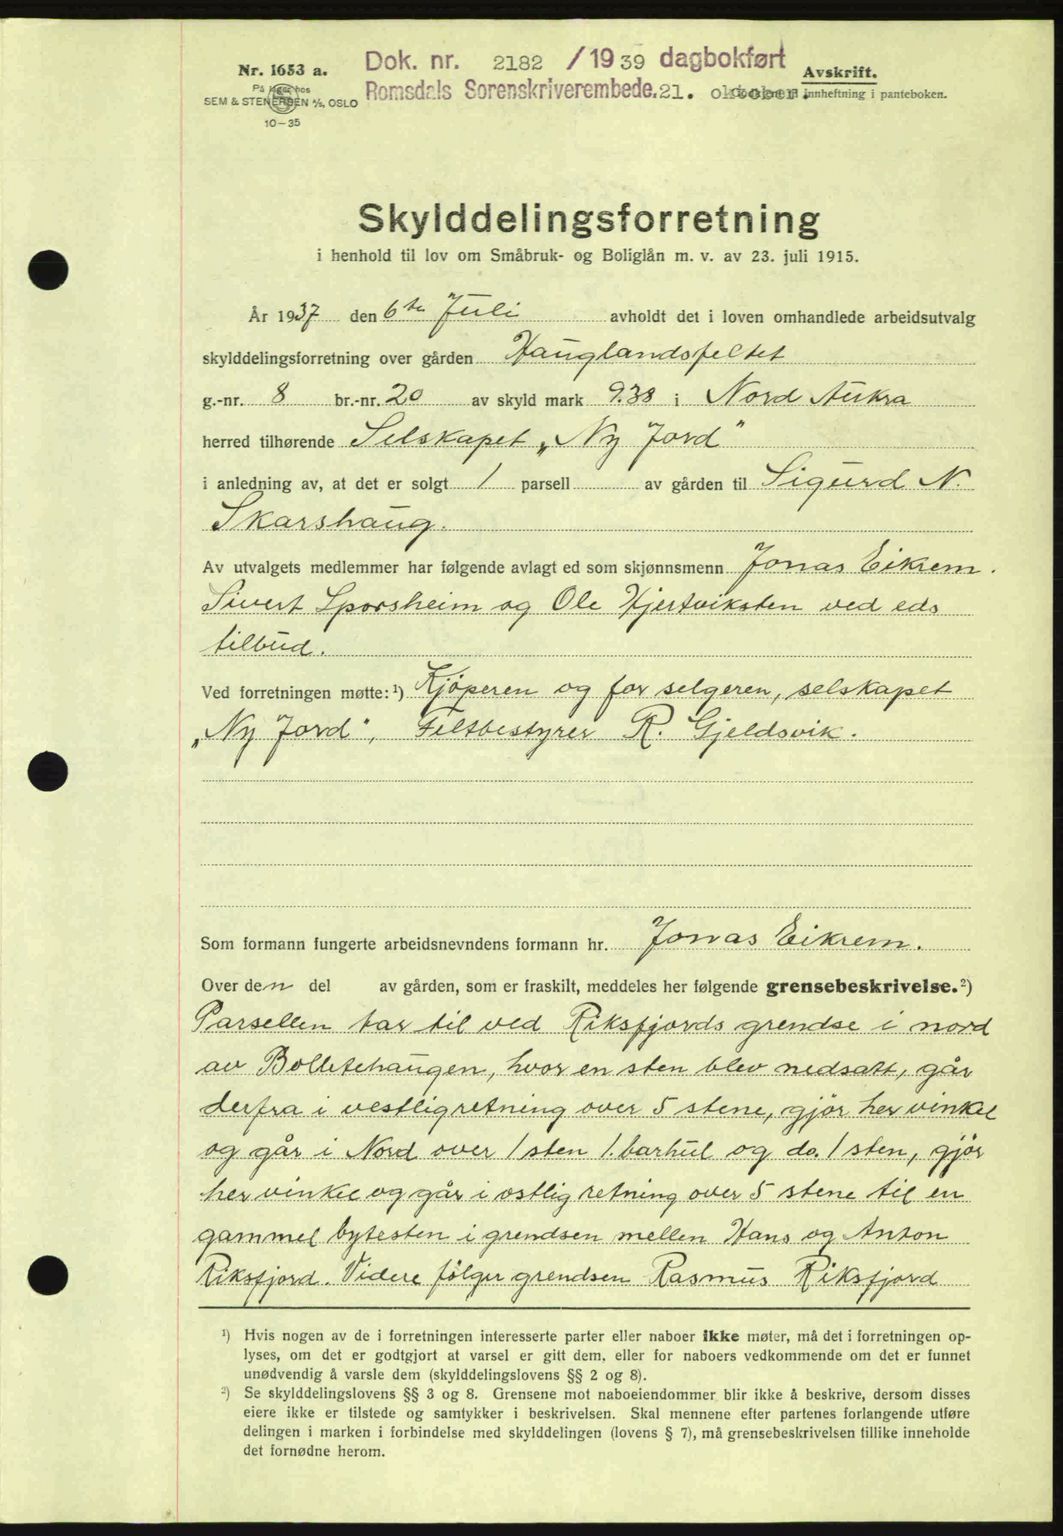 Nr. 1653 a.
På lager hos
SEM & STENERSEN A/S, OSLO
10-35
Dok. nr. 2182 / 1939 dagbokført
Romsdals Sorenskriverembede. 21. oktober.
Avskrift.
innheftning i panteboken.
Skylddelingsforretning
i henhold til lov om Småbruk- og Boliglån m. v. av 23. juli 1915.
År 1937 den 6te Juli avholdt det i loven omhandlede arbeidsutvalg
skylddelingsforretning over gården Hauglandsfeltet
g.-nr. 8 br.-nr. 20 av skyld mark 9.38 i Nord Aukra
herred tilhørende Selskapet „Ny Jord"
i anledning av, at det er solgt 1 parsell av gården til Sigurd N.
Skarshaug.
Av utvalgets medlemmer har følgende avlagt ed som skjønnsmenn Jonas Eikrem.
Sivert Sporsheim og Ole Hjertviksten ved eds
tilbud.
Ved forretningen møtte:¹) Kjøperen og for selgeren, selskapet
„Ny Jord", Feltbestyrer R. Gjeldsvik.
Som formann fungerte arbeidsnevndens formann hr. Jonas Eikrem.
Over den del av gården, som er fraskilt, meddeles her følgende grensebeskrivelse.²)
Parsellen tar til ved Riksfjords grendse i nord
av Bolletehaugen, hvor en sten blev nedsatt, går
derfra i vestlig retning over 5 stene, gjör her vinkel
og går i Nord over 1 sten 1. barhul og do. 1 sten, gjör
her vinkel og går i östlig retning over 5 stene til en
gammel bytesten i grendsen mellen Hans og Anton
Riksfjord. Videre fölger grendsen Rasmus Riksfjord
¹) Hvis nogen av de i forretningen interesserte parter eller naboer ikke møter, må det i forretningen op-
lyses, om det er godtgjort at varsel er gitt dem, eller for naboers vedkommende om det er funnet
unødvendig å varsle dem (skylddelingslovens §§ 2 og 8).
²) Se skylddelingslovens §§ 3 og 8. Grensene mot naboeiendommer blir ikke å beskrive, dersom disses
eiere ikke er tilstede og samtykker i beskrivelsen. Skal mennene efter partenes forlangende utføre
delingen i marken i forbindelse med skylddelingen (lovens § 7), må grensebeskrivelsen tillike inneholde
det fornødne herom.